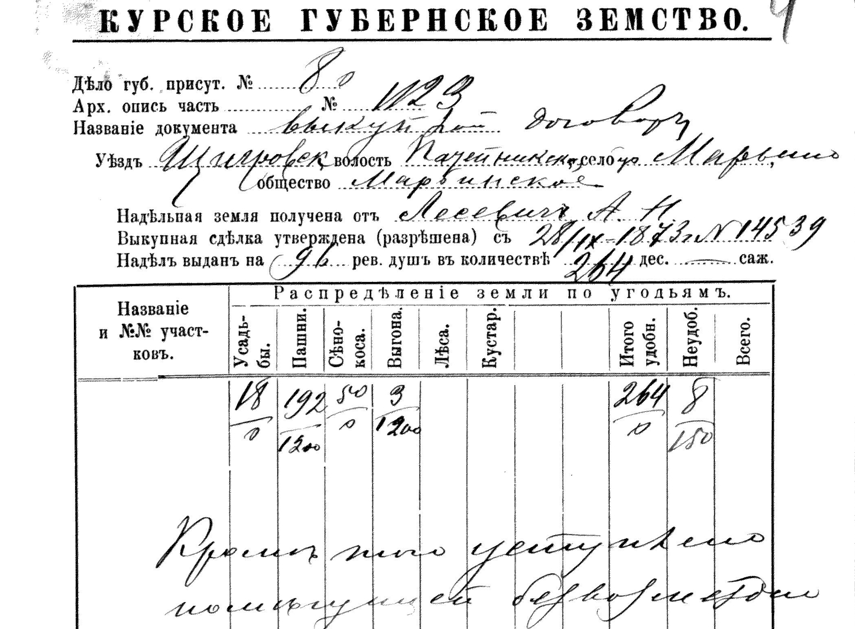 КУРСКОЕ ГУБЕРНСКОЕ ЗЕМСТВО.
Дѣло губ. присут. № 80
Арх. опись часть № 1123
Названіе документа выкупной договоръ
Уѣздъ Щигровск. волость село Марьино
общество Марьинское
Надѣльная земля получена отъ Лесевичъ А. Н
Выкупная сдѣлка утверждена (разрѣшена) съ 28/IX-1873г N 14539
Надѣлъ выданъ на 96 рев. душъ въ количествѣ 264 дес. — саж.
Названіе и №№ участковъ.
Распредѣленіе земли по угодьямъ.
Усадьбы. Пашни. Сѣнокоса. Выгона. Лѣса. Кустар. Итого удобн. Неудоб. Всего.
18 192 50 3 264 8
0 1200 0 1200 0 150
Кромѣ того уступлено
помѣщицей безвозмездно